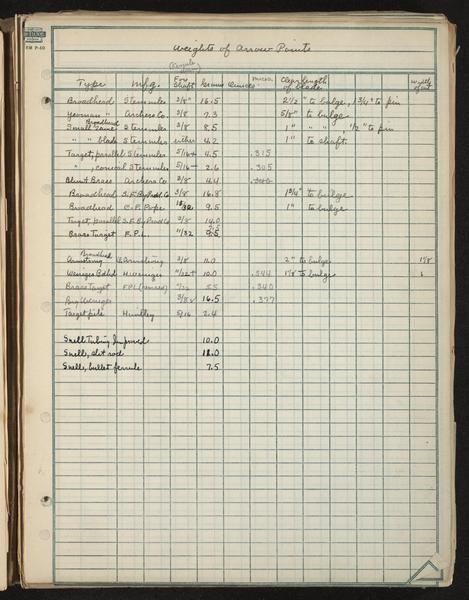 Weights of Arrow Points
Type Mfg. For Shaft Grams Ounces Clear length of blade Width of cut
Broadhead Stemmler 3/8" 16.5 2 1/2" to bulge, 1 3/4" to pin
Yeoman " Archers Co. 3/8 7.3 5/8" to bulge
Broadhead
Small Game Stemmler 3/8 8.5 1" " " , 1/2" to pin
" " blade Stemmler either 4.2 1" to shaft
Target, parallel Stemmler 5/16+ 4.5 .315
" , conical Stemmler 5/16- 2.6 .305
Blunt Brass Archers Co 3/8" 4.4
Broadhead S.F. By Prod. Co 3/8 16.8 1 3/4" to bulge
Broadhead C.F. Pope 11/32 9.5 1" to bulge
Target, parallel S.F. By Prod Co 3/8 14.0
Brass Target F.P.L. 11/32 9.5
Broadhead
Armstrong Armstrong 3/8 11.0 2" to bulge 1 1/8
Weniger Bdhd H. Weniger 11/32+ 10.0 .344 1 1/8 to bulge
Brass Target FPL 11/32 5.5 .340
Weniger 3/8 16.5 .377
Target pile Huntley 5/16 2.4
Snell Tubing Improved 10.0
Snell, slit rod 18.0
Snell, bullet ferrule 7.5